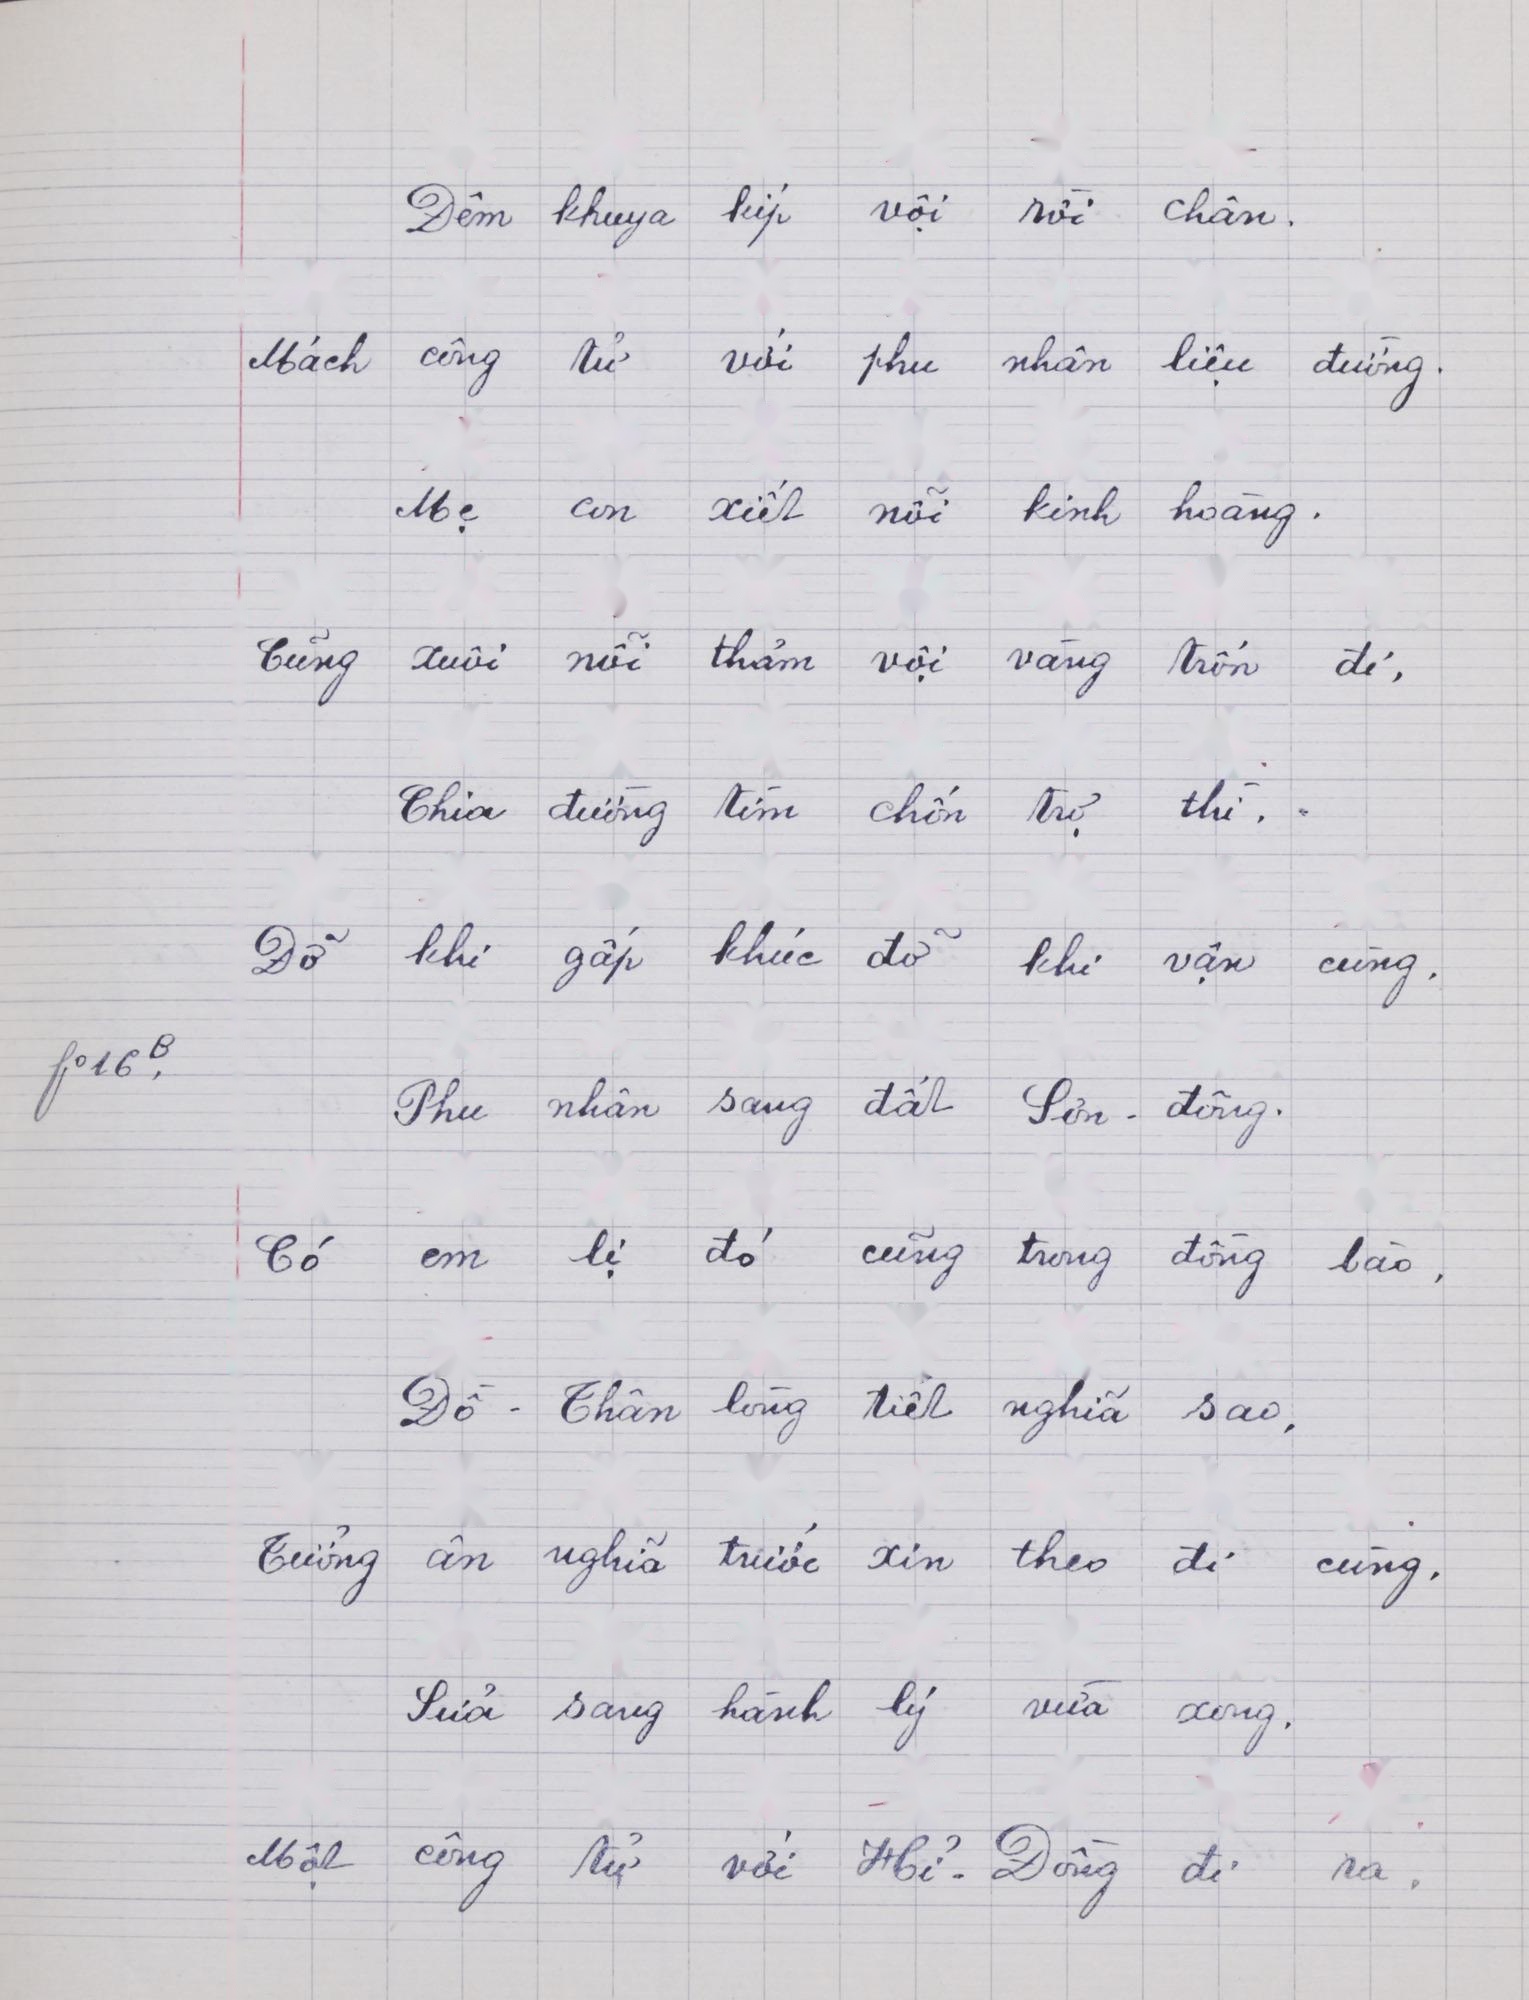 Đêm khuya kíp vội rời chân.
Mách công tử với phu nhân liệu đường.
Mẹ con xiết nỗi kinh hoàng.
Cũng xuôi nỗi thảm vội vàng trốn đi,
Chia đường tìm chốn trợ thì.
Dỡ khi gấp khúc đỡ khi vận cùng.
fo 16 B.
Phu nhân sang đất Sơn-đông.
Có em lị đó cũng trong đồng bào,
Đồ-Thân lòng tiết nghĩa sao,
Tưởng ân nghĩa trước xin theo đi cùng.
Sửa sang hành lý vừa xong.
Một công tử với Hỉ-Đồng đi ra.